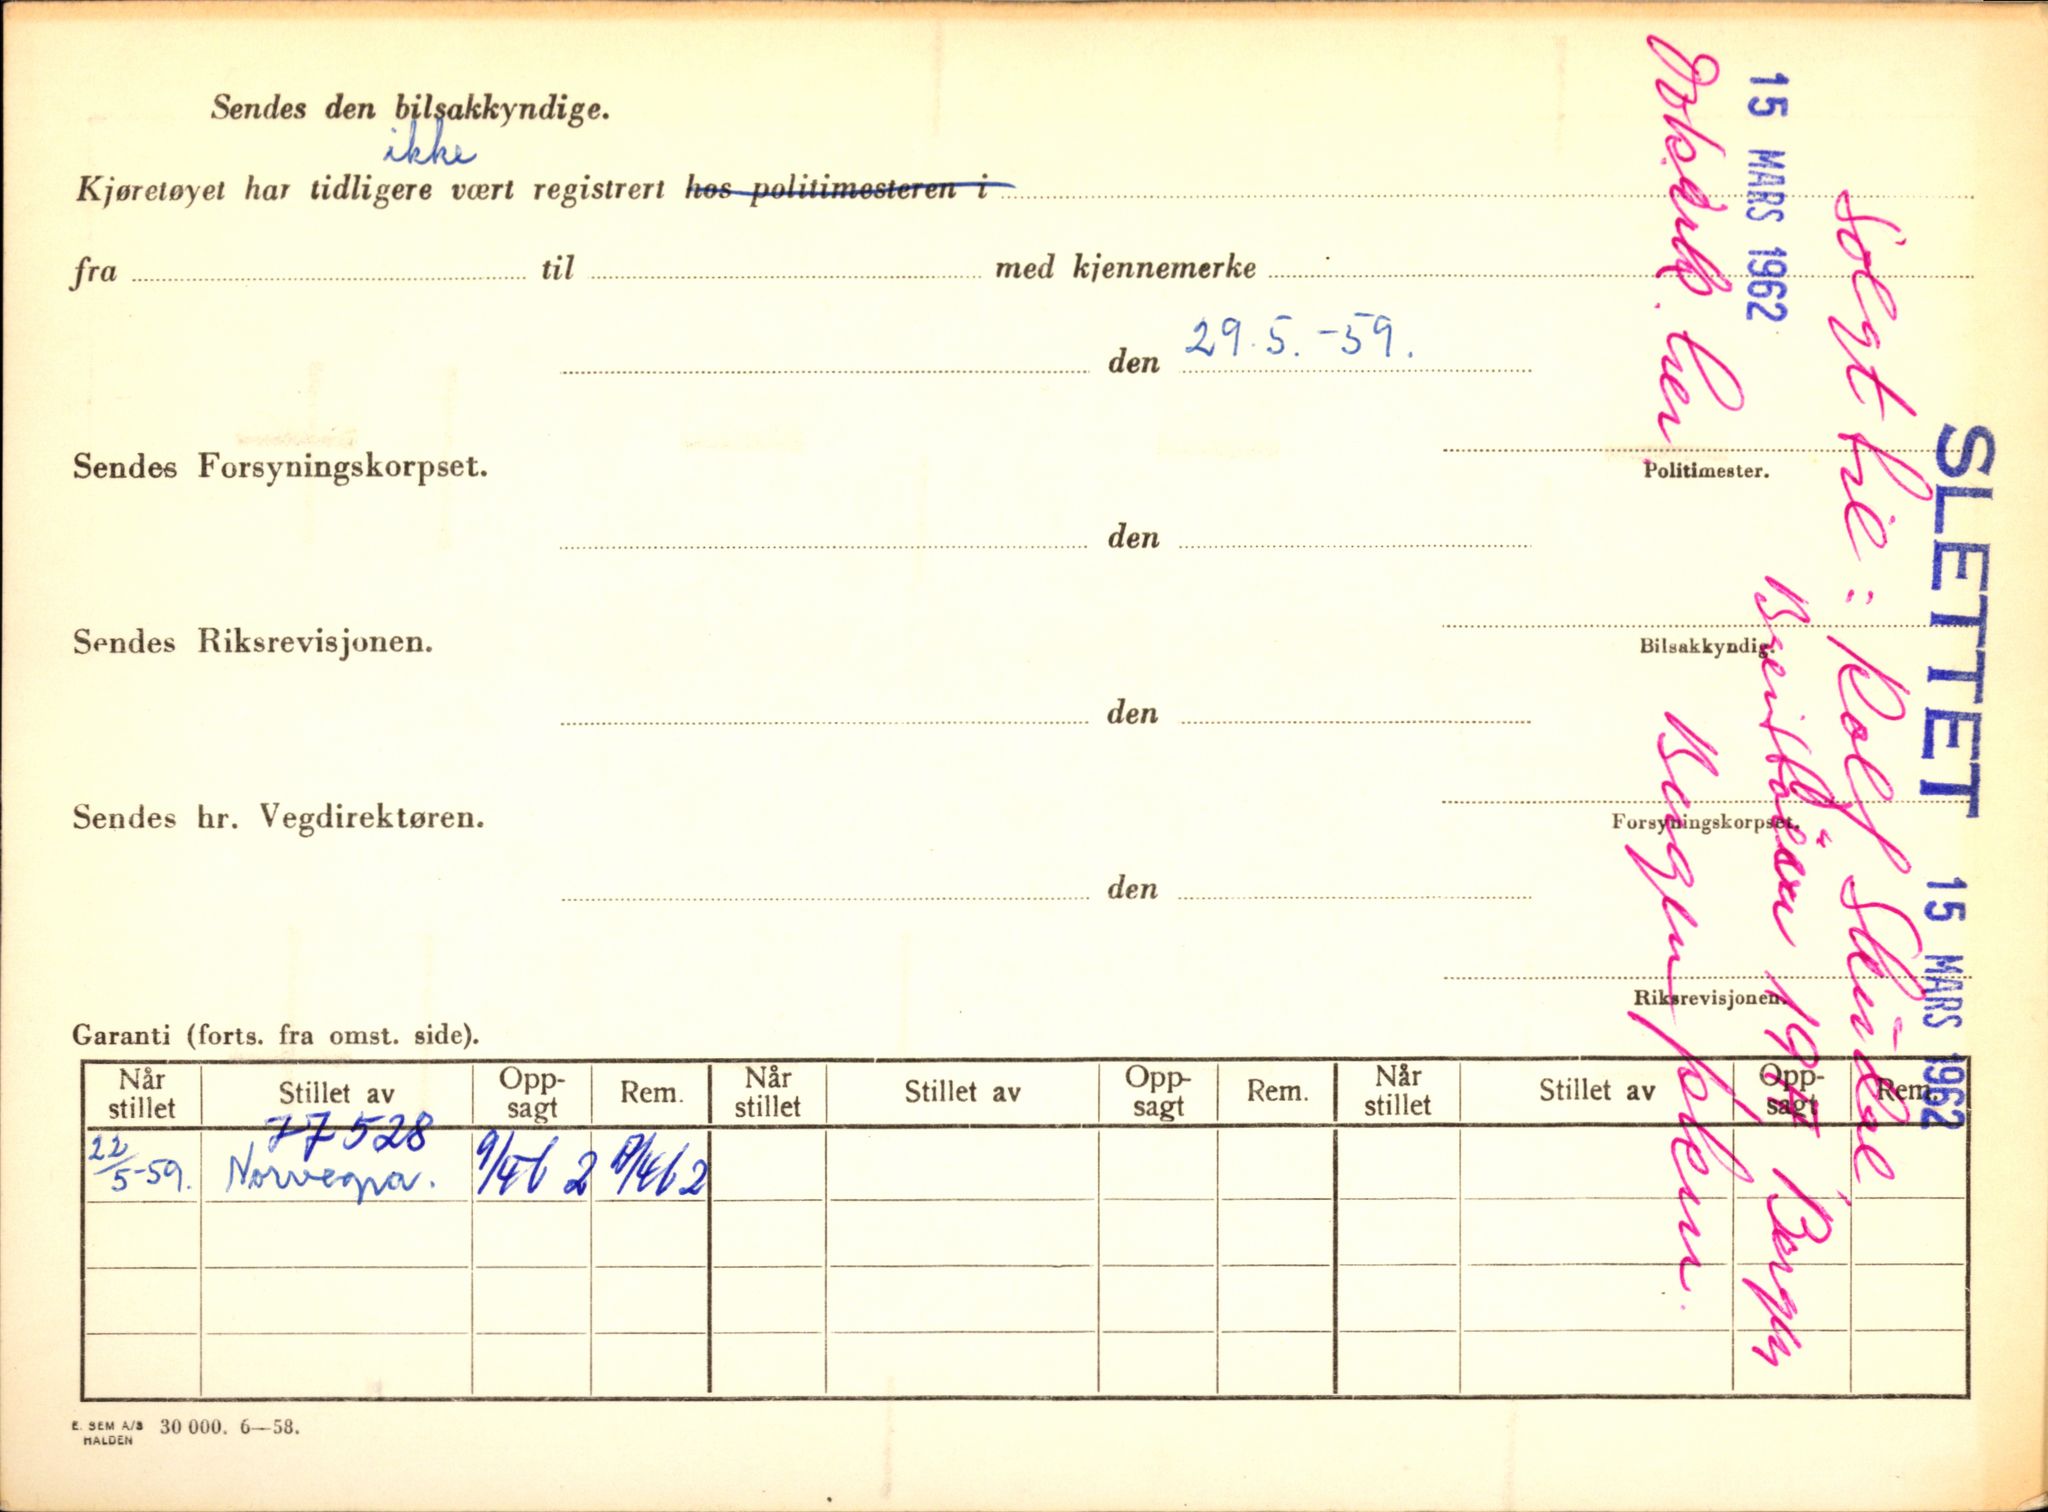 Sendes den bilsakkyndige.
ikke
Kjøretøyet har tidligere vært registrert hos politimesteren i
fra til med kjennemerke
den 29.5.-59.
Sendes Forsyningskorpset.
Politimester.
den
Sendes Riksrevisjonen.
Bilsakkyndig.
den
Sendes hr. Vegdirektøren.
Forsyningskorpset.
den
Riksrevisjonen.
Garanti (forts. fra omst. side).
Når stillet Stillet av Opp-sagt Rem. Når stillet Stillet av Opp-sagt Rem. Når stillet Stillet av Opp-sagt Rem.
77528
22/5-59. Norvegia. 9/4 62 9/4 62
E. SEM A/S
HALDEN
30 000. 6—58.
SLETTET 15 MARS 1962
Solgt til: Rolf
15 MARS 1962
Bergen
her